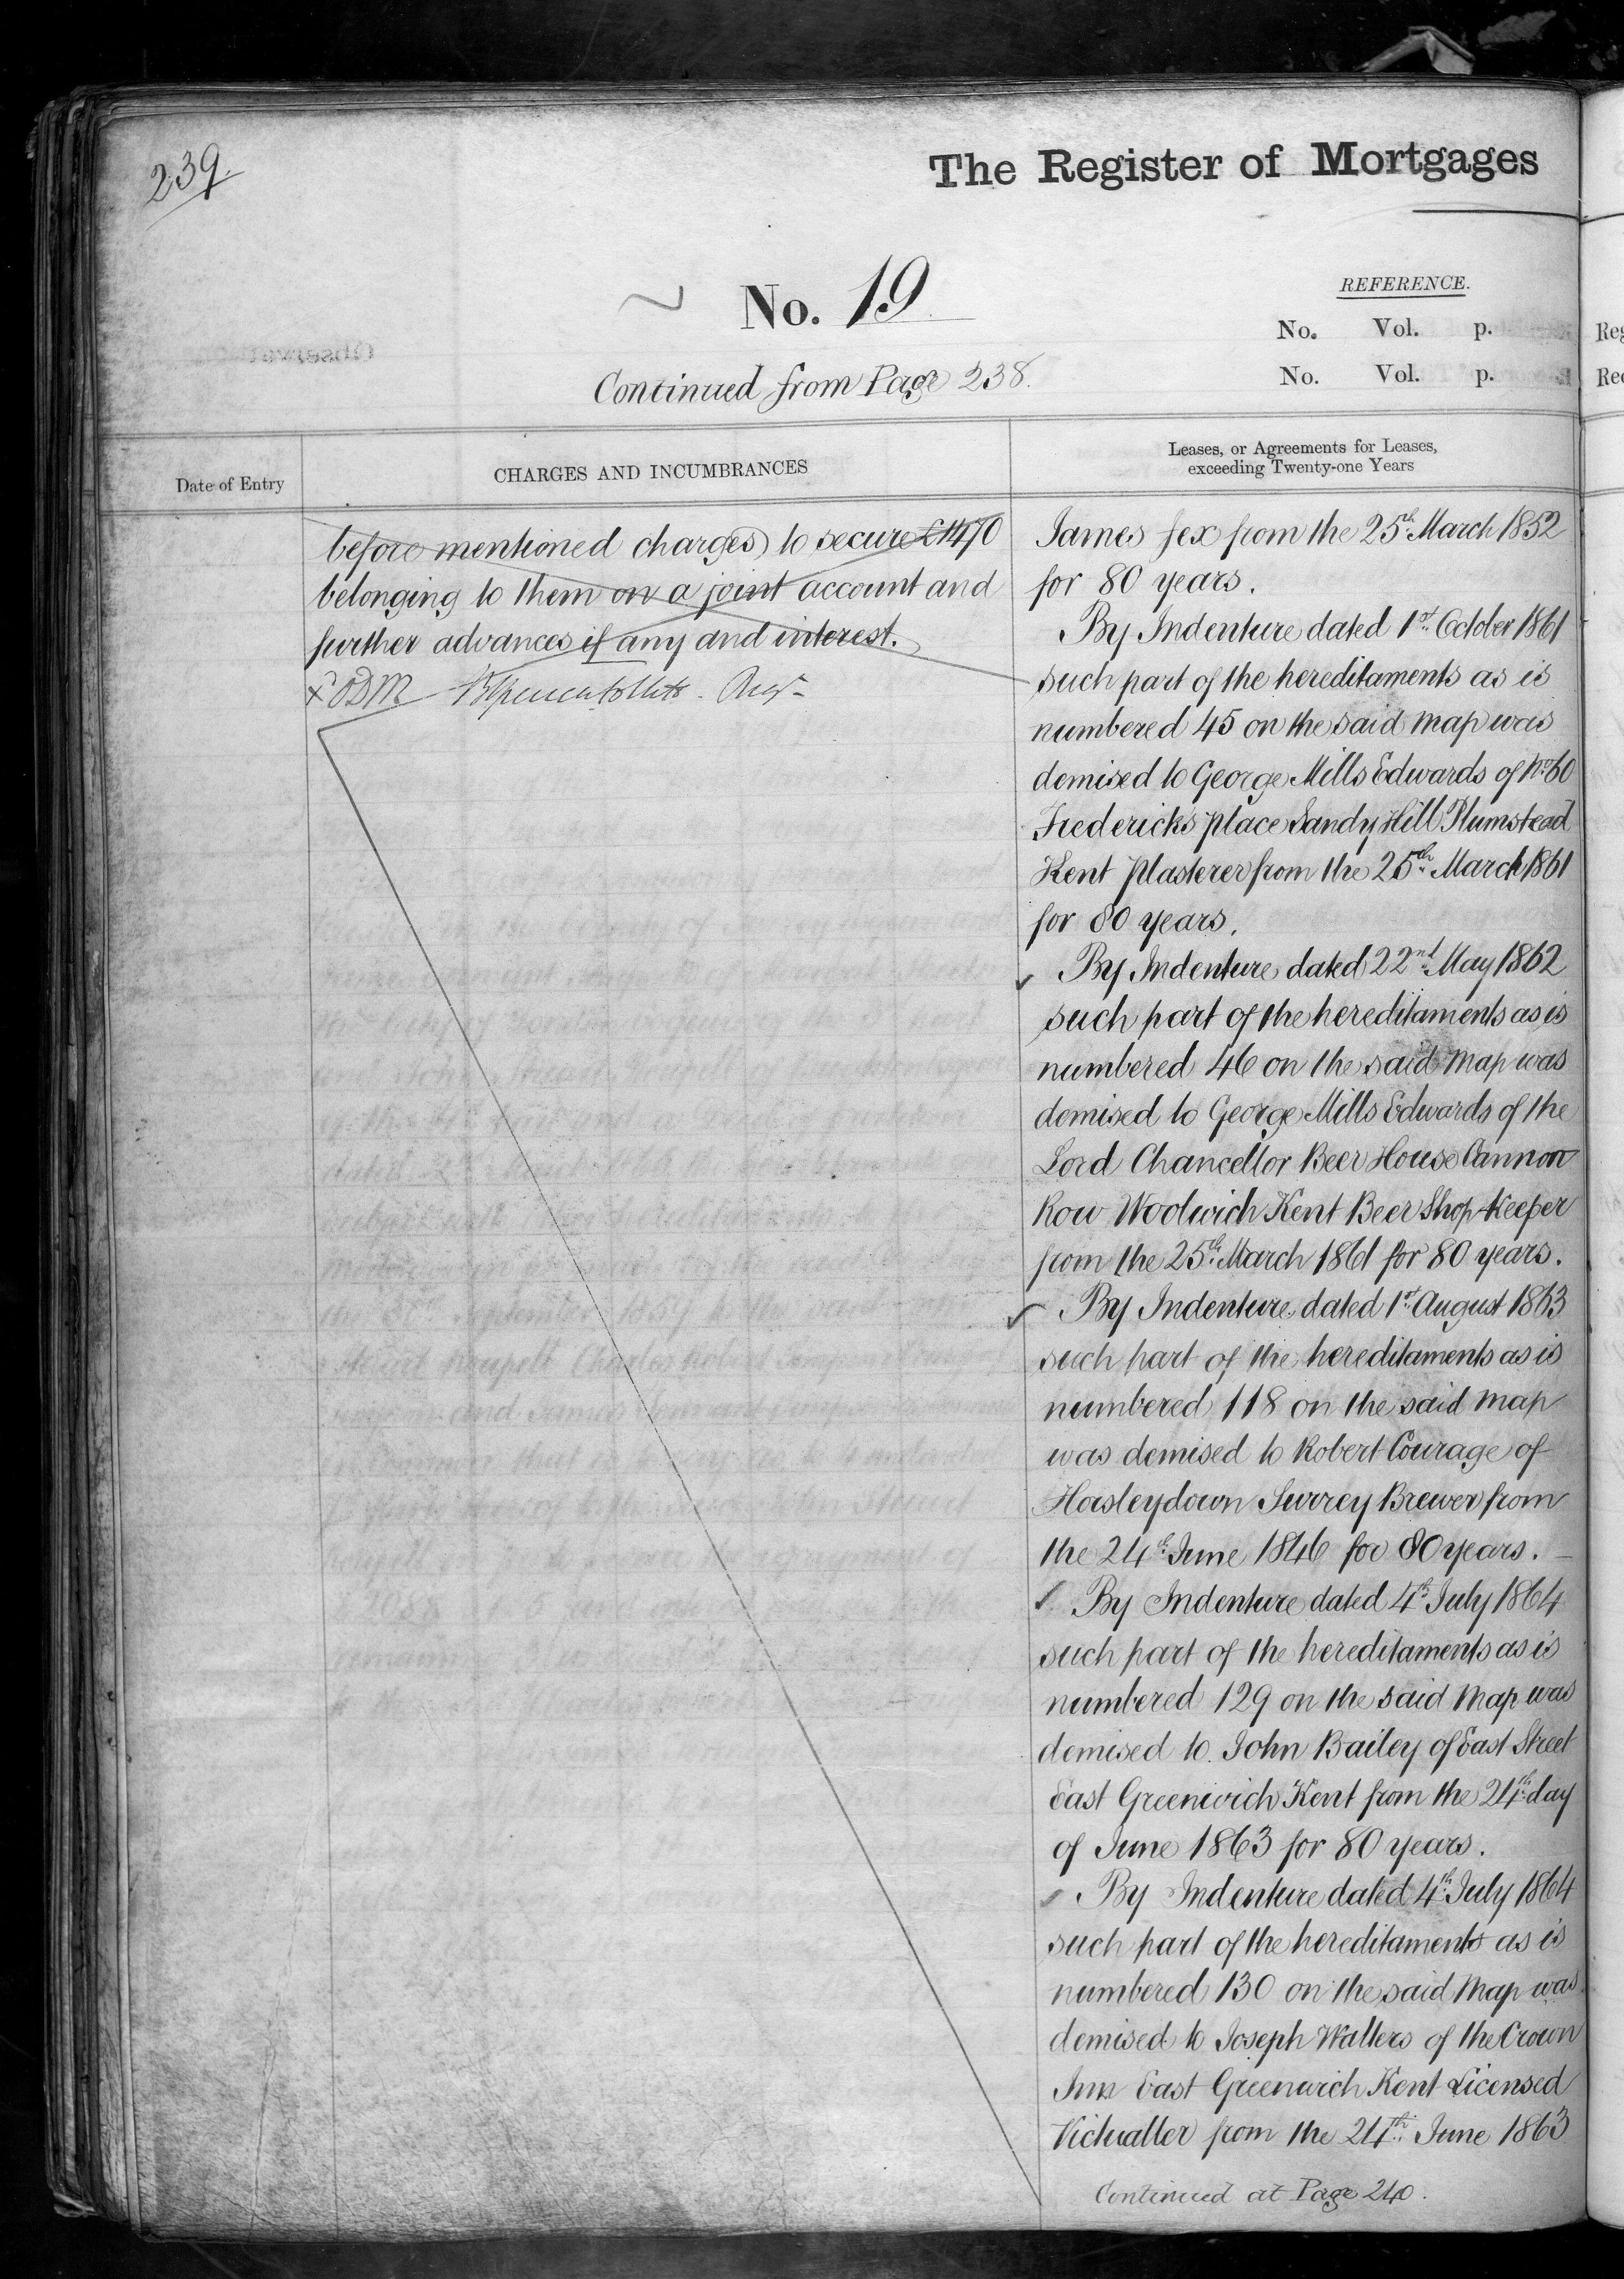 239.
The Register of Mortgages
No. 19
REFERENCE.
No. Vol. p.
No. Vol. p.
Continued from Page 238.
Date of Entry
CHARGES AND INCUMBRANCES
Leases, or Agreements for Leases,
exceeding Twenty-one Years
before mentioned charges) to secure £1470
belonging to them on a joint account and
further advances if any and interest.
James Jex from the 25th March 1852
for 80 years.
By Indenture dated 1st October 1861
such part of the hereditaments as is
numbered 45 on the said map was
demised to George Mills Edwards of No 60
Fredericks place Sandy Hill Plumstead
Kent Plasterer from the 25th March 1861
for 80 years.
By Indenture dated 22nd May 1862
such part of the hereditaments as is
numbered 46 on the said map was
demised to George Mills Edwards of the
Lord Chancellor Beer House Cannon
Row Woolwich Kent Beer Shop Keeper
from the 25th March 1861 for 80 years.
By Indenture dated 1st August 1863
such part of the hereditaments as is
numbered 118 on the said map
was demised to Robert Courage of
Horsleydown Surrey Brewer from
the 24th June 1846 for 80 years.
By Indenture dated 4th July 1864
such part of the hereditaments as is
numbered 129 on the said map was
demised to John Bailey of East Street
East Greenwich Kent from the 24th day
of June 1863 for 80 years.
By Indenture dated 4th July 1864
such part of the hereditaments as is
numbered 130 on the said map was
demised to Joseph Walters of the Crown
Inn East Greenwich Kent Licensed
Victualler from the 24th June 1863
Continued at Page 240.